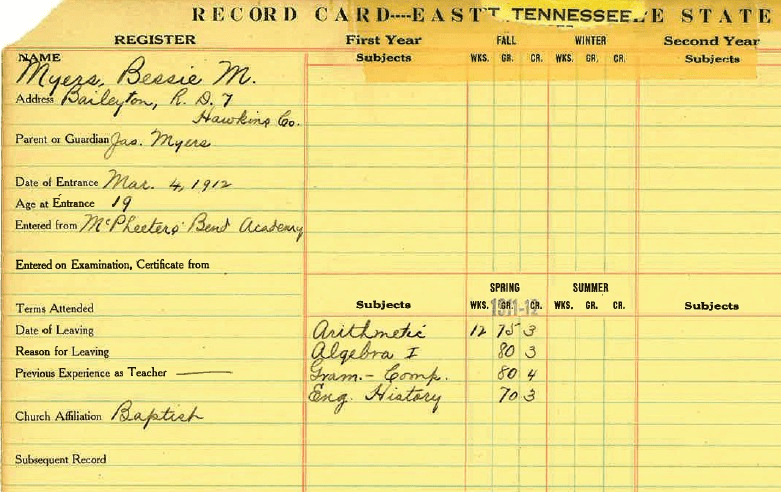 RECORD CARD----EAST TENNESSEE STATE
REGISTER
First Year
FALL
WINTER
Second Year
NAME
Subjects
WKS. GR. CR. WKS. GR. CR.
Subjects
Myers, Bessie M.
Address Baileyton, R. D. 7
Hawkins Co.
Parent or Guardian Jas. Myers
Date of Entrance Mar. 4, 1912
Age at Entrance 19
Entered from McPheeters' Bend Academy
Entered on Examination, Certificate from
SPRING
SUMMER
Terms Attended
Subjects
WKS. GR. CR. WKS. GR. CR.
Subjects
1911-12
Date of Leaving
Arithmetic 12 75 3
Reason for Leaving
Algebra I 80 3
Previous Experience as Teacher ——
Gram.- Comp. 80 4
Eng. History 70 3
Church Affiliation Baptist
Subsequent Record